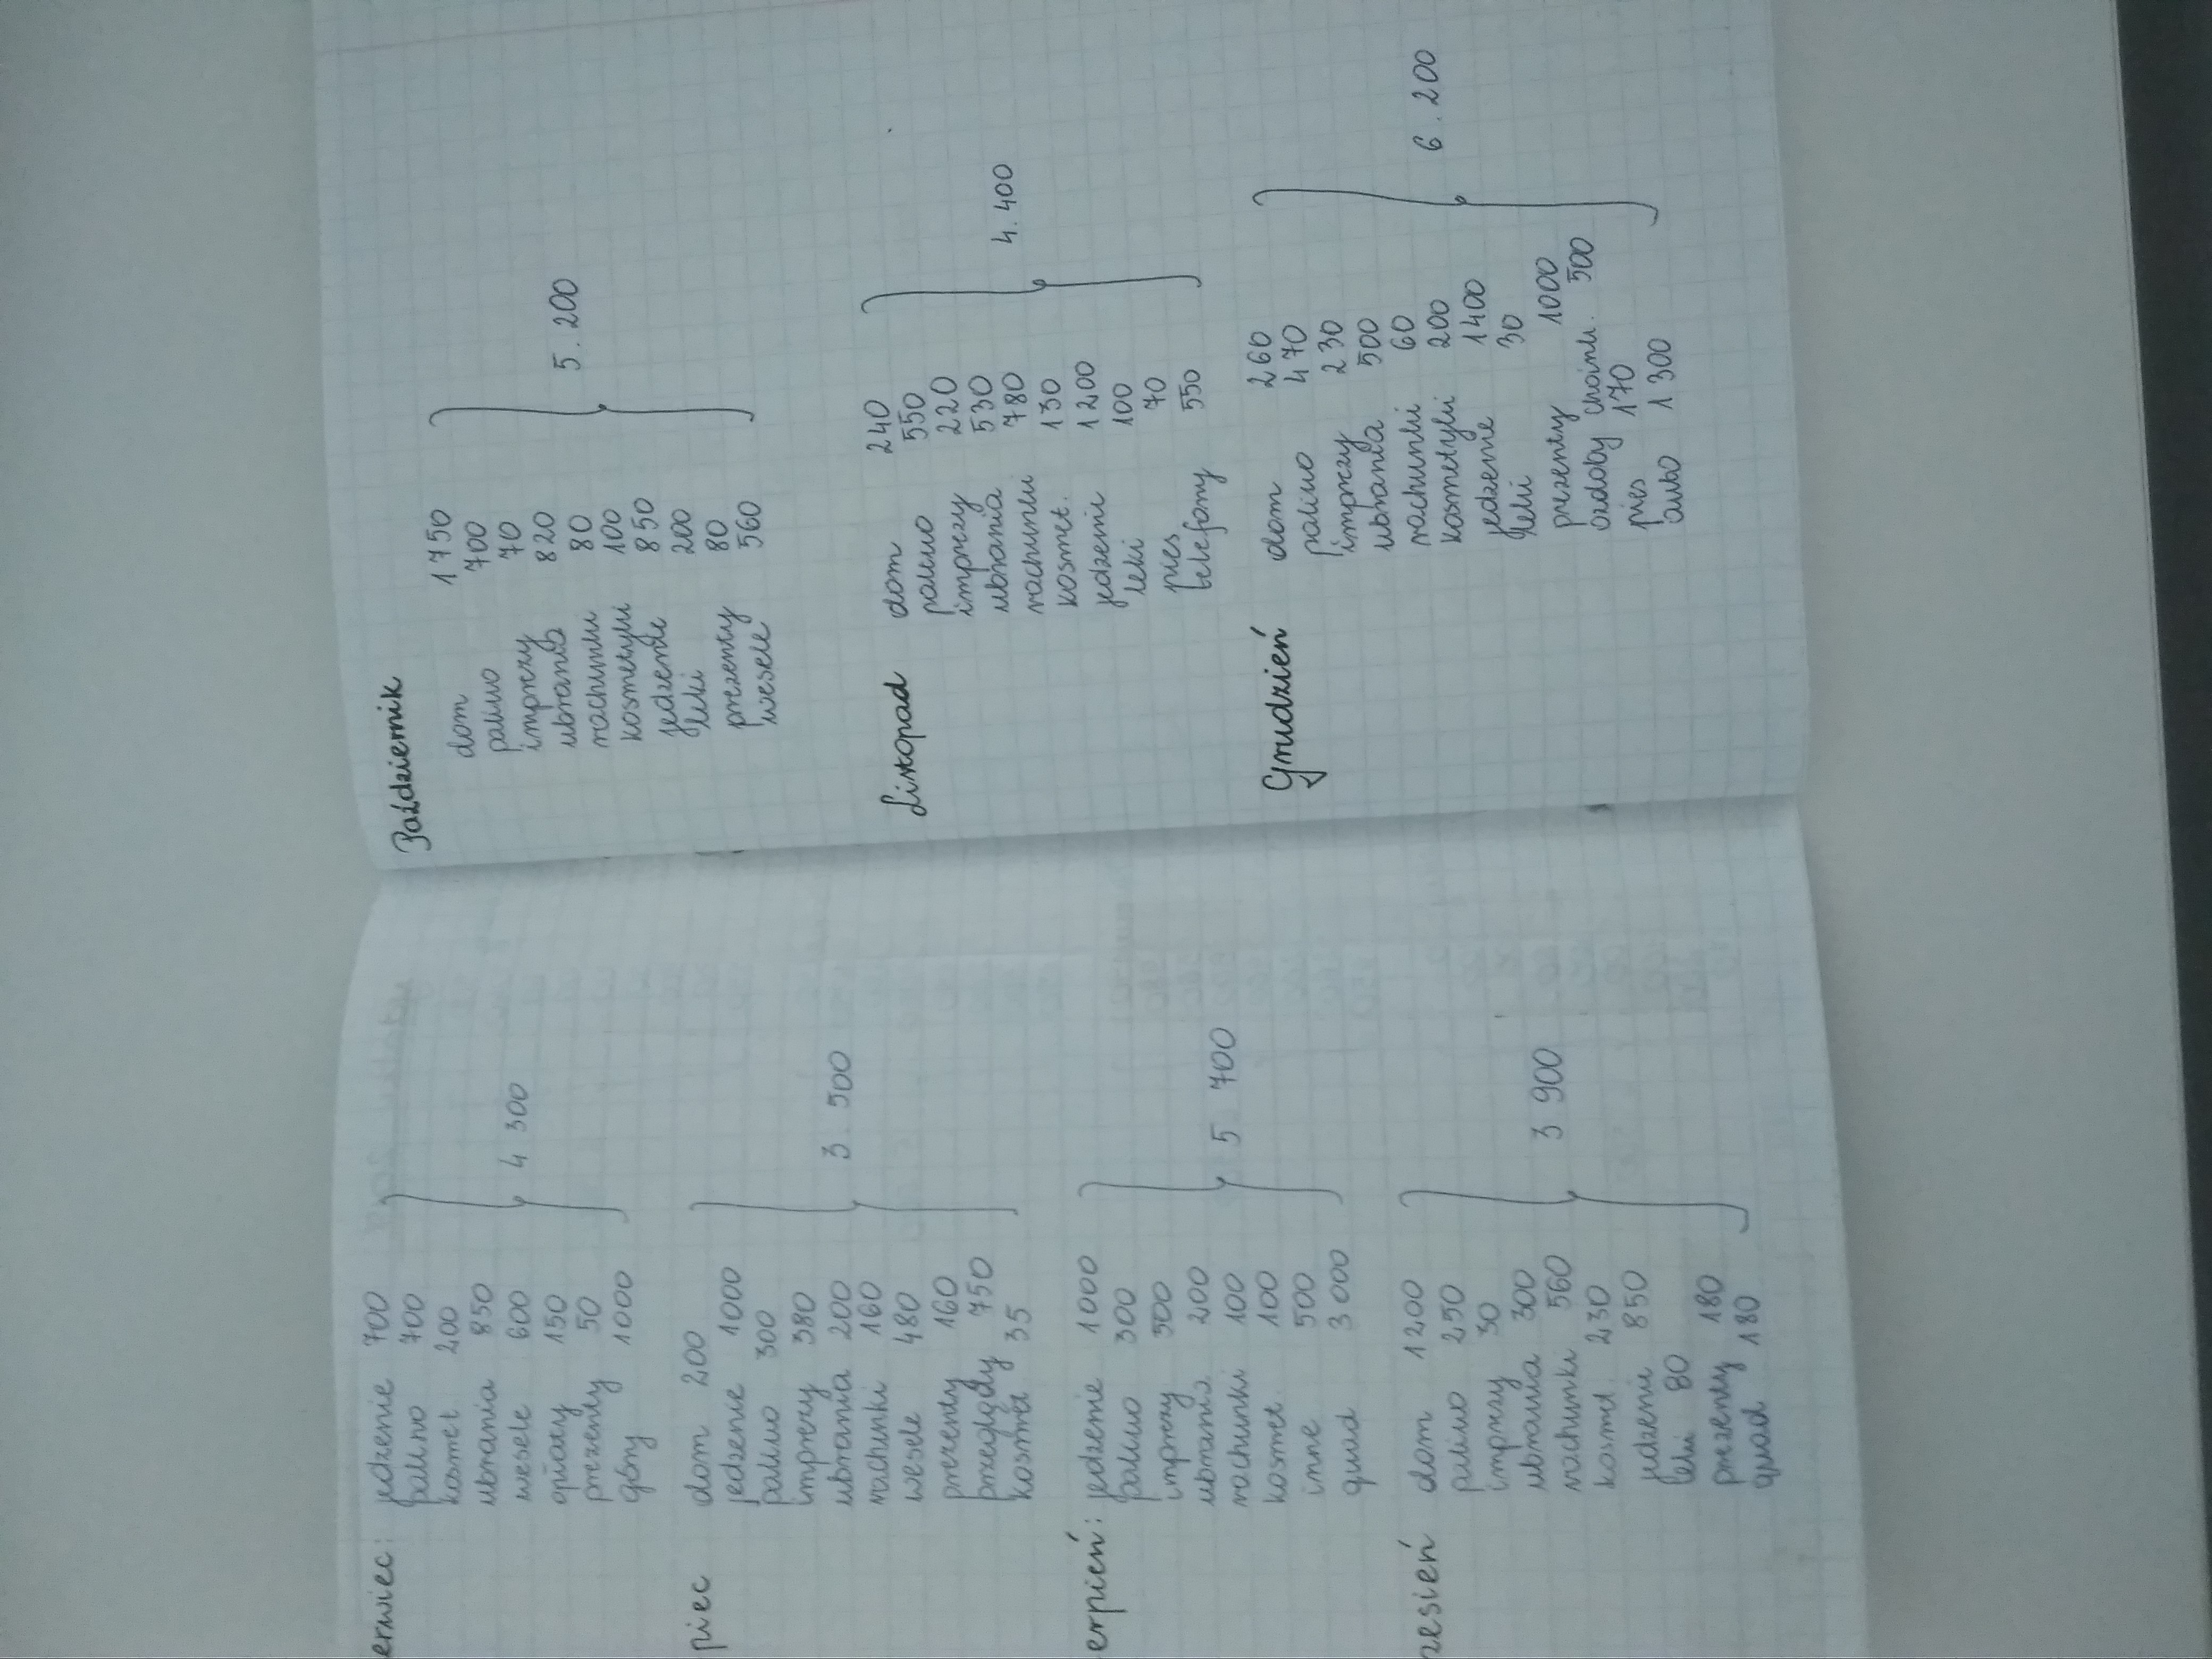 erwiec: jedzenie 700
paliwo 700
kosmet 200
ubrania 850
wesele 600
opłaty 150
prezenty 50
góry 1000
4 300
piec dom 200
jedzenie 1000
paliwo 300
imprezy 380
ubrania 200
rachunki 160
wesele 480
prezenty 160
przeglądy 750
kosmet. 35
3. 500
erpień: jedzenie 1000
paliwo 300
imprezy 500
ubrania 200
rachunki 100
kosmet. 100
inne 500
quad 3000
5 700
zesień dom 1200
paliwo 250
imprezy 30
ubrania 300
rachunki 560
kosmet. 230
jedzenie 850
leki 80
prezenty 180
quad 180
3 900
Październik
dom 1750
paliwo 700
imprezy 70
ubrania 820
rachunki 80
kosmetyki 100
jedzenie 850
leki 200
prezenty 80
wesele 560
5. 200
Listopad dom 240
paliwo 550
imprezy 220
ubrania 530
rachunki 780
kosmet. 130
jedzenie 1200
leki 100
pies 70
telefony 550
4. 400
Grudzień dom 260
paliwo 470
imprezy 230
ubrania 500
rachunki 60
kosmetyki 200
jedzenie 1400
leki 30
prezenty 1000
ozdoby choink. 500
pies 170
auto 1300
6. 200